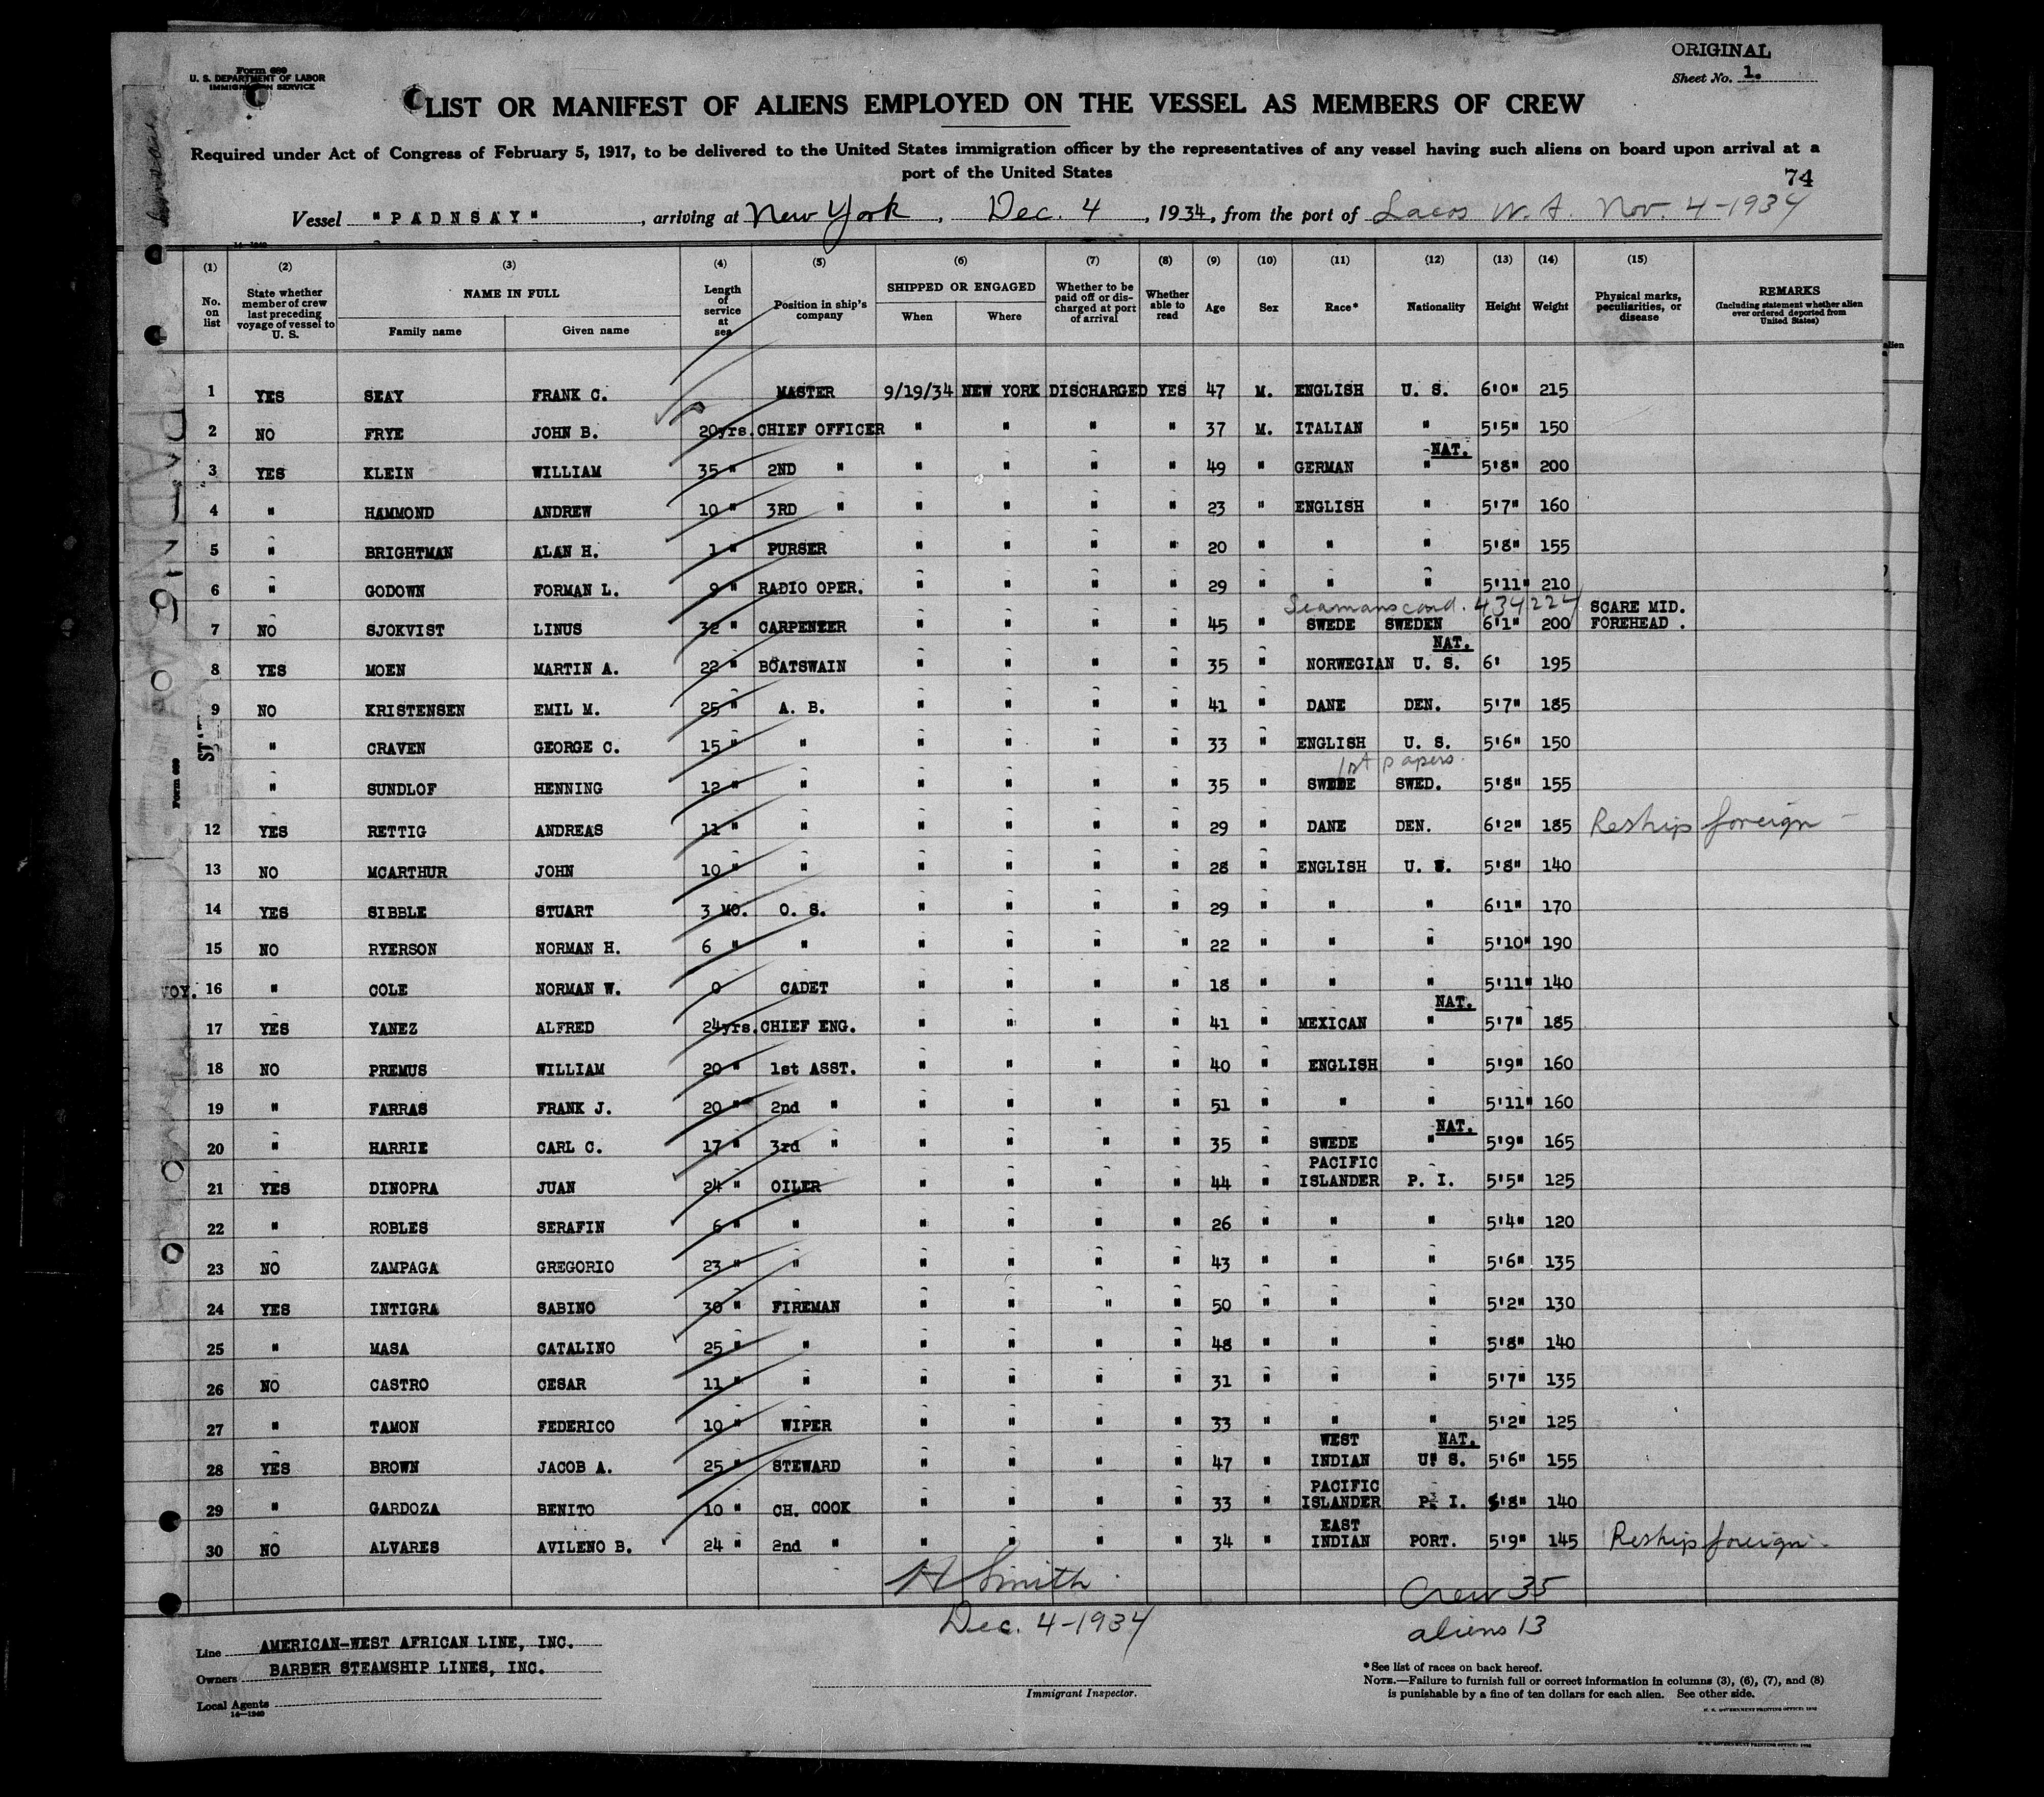 ORIGINAL
Sheet No. 1.
Form 689
U. S. DEPARTMENT OF LABOR
IMMIGRATION SERVICE
LIST OR MANIFEST OF ALIENS EMPLOYED ON THE VESSEL AS MEMBERS OF CREW
Required under Act of Congress of February 5, 1917, to be delivered to the United States immigration officer by the representatives of any vessel having such aliens on board upon arrival at a
port of the United States
74
Vessel "PADNSAY", arriving at New York, Dec. 4, 1934, from the port of Lagos W. A. Nov. 4-1934
(1) (2) (3) (4) (5) (6) (7) (8) (9) (10) (11) (12) (13) (14) (15)
No. on list
State whether member of crew last preceding voyage of vessel to U. S.
NAME IN FULL
Family name
Given name
Length of service at sea
Position in ship's company
SHIPPED OR ENGAGED
When
Where
Whether to be paid off or discharged at port of arrival
Whether able to read
Age
Sex
Race*
Nationality
Height
Weight
Physical marks, peculiarities, or disease
REMARKS
(Including statement whether alien ever ordered deported from United States)
1 YES SEAY FRANK C. MASTER 9/19/34 NEW YORK DISCHARGED YES 47 M. ENGLISH U. S. 6'0" 215
2 NO FRYE JOHN B. 20yrs. CHIEF OFFICER " " " " 37 M. ITALIAN " 5'5" 150
NAT.
3 YES KLEIN WILLIAM 35 " 2ND " " " " " 49 " GERMAN " 5'8" 200
4 " HAMMOND ANDREW 10 " 3RD " " " " " 23 " ENGLISH " 5'7" 160
5 " BRIGHTMAN ALAN H. 1 " PURSER " " " " 20 " " " 5'8" 155
6 " GODOWN FORMAN L. 9 " RADIO OPER. " " " " 29 " " " 5'11" 210
Seamans card. 434224 SCARE MID.
7 NO SJOKVIST LINUS 32 " CARPENTER " " " " 45 " SWEDE SWEDEN 6'1" 200 FOREHEAD .
NAT.
8 YES MOEN MARTIN A. 22 " BOATSWAIN " " " " 35 " NORWEGIAN U. S. 6' 195
9 NO KRISTENSEN EMIL M. 25 " A. B. " " " " 41 " DANE DEN. 5'7" 185
" CRAVEN GEORGE C. 15 " " " " " " 33 " ENGLISH U. S. 5'6" 150
1st papers.
11 " SUNDLOF HENNING 12 " " " " " " 35 " SWEDE SWED. 5'8" 155
12 YES RETTIG ANDREAS 11 " " " " " " 29 " DANE DEN. 6'2" 185 Reship foreign
13 NO MCARTHUR JOHN 10 " " " " " " 28 " ENGLISH U. S. 5'8" 140
14 YES SIBBLE STUART 3 MO. O. S. " " " " 29 " " " 6'1" 170
15 NO RYERSON NORMAN H. 6 " " " " " " 22 " " " 5'10" 190
VOY. 16 " COLE NORMAN W. 0 CADET " " " " 18 " " " 5'11" 140
NAT.
17 YES YANEZ ALFRED 24yrs. CHIEF ENG. " " " " 41 " MEXICAN " 5'7" 185
18 NO PREMUS WILLIAM 20 " 1st ASST. " " " " 40 " ENGLISH " 5'9" 160
19 " FARRAS FRANK J. 20 " 2nd " " " " " 51 " " " 5'11" 160
NAT.
20 " HARRIE CARL C. 17 " 3rd " " " " " 35 " SWEDE " 5'9" 165
PACIFIC
21 YES DINOPRA JUAN 24 " OILER " " " " 44 " ISLANDER P. I. 5'5" 125
22 " ROBLES SERAFIN 6 " " " " " " 26 " " " 5'4" 120
23 NO ZAMPAGA GREGORIO 23 " " " " " " 43 " " " 5'6" 135
24 YES INTIGRA SABINO 30 " FIREMAN " " " " 50 " " " 5'2" 130
25 " MASA CATALINO 25 " " " " " " 48 " " " 5'8" 140
26 NO CASTRO CESAR 11 " " " " " " 31 " " " 5'7" 135
27 " TAMON FEDERICO 10 " WIPER " " " " 33 " " " 5'2" 125
WEST NAT.
28 YES BROWN JACOB A. 25 " STEWARD " " " " 47 " INDIAN U. S. 5'6" 155
PACIFIC
29 " GARDOZA BENITO 10 " CH. COOK " " " " 33 " ISLANDER P. I. 5'8" 140
EAST
30 NO ALVARES AVILENO B. 24 " 2nd " " " " " 34 " INDIAN PORT. 5'9" 145 Reship foreign
H Smith
Dec. 4-1934
Crew 35
aliens 13
Line AMERICAN-WEST AFRICAN LINE, INC.
Owners BARBER STEAMSHIP LINES, INC.
Local Agents
14—1240
Immigrant Inspector.
*See list of races on back hereof.
NOTE.—Failure to furnish full or correct information in columns (3), (6), (7), and (8)
is punishable by a fine of ten dollars for each alien. See other side.
Form 689